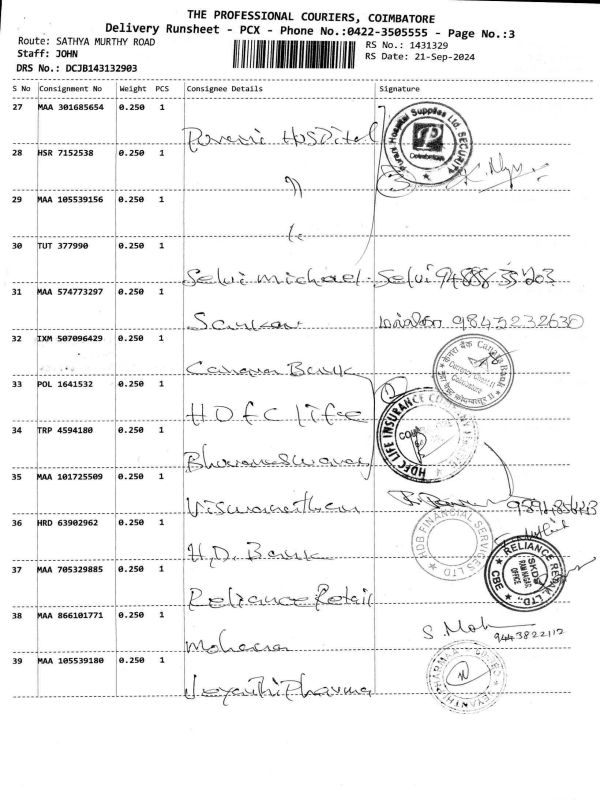 THE PROFESSIONAL COURIERS, COIMBATORE
Delivery Runsheet - PCX - Phone No.:0422-3505555 - Page No.:3
Route: SATHYA MURTHY ROAD
RS No.: 1431329
Staff: JOHN
RS Date: 21-Sep-2024
DRS No.: DCJB143132903
S No Consignment No Weight PCS Consignee Details Signature
27 MAA 301685654 0.250 1 Hospital
Purani Hospital Supplies Ltd. SECURITY
Coimbatore
28 HSR 7152538 0.250 1 〃 3
29 MAA 105539156 0.250 1
30 TUT 377990 0.250 1 Selvi michael Selvi 94888 35203
31 MAA 574773297 0.250 1 Sankar 9843232630
32 IXM 507096429 0.250 1 Canara Bank
केनरा बैंक Canara Bank
Coimbatore
33 POL 1641532 0.250 1 HDFC life
HDFC LIFE INSURANCE
34 TRP 4594180 0.250 1
35 MAA 101725509 0.250 1 Viswanathan
36 HRD 63902962 0.250 1 H.D. Bank
HDB FINANCIAL SERVICES LTD
37 MAA 705329885 0.250 1 Reliance Retail
RELIANCE RETAIL LTD., CBE
RAM NAGAR
OFFICE
38 MAA 866101771 0.250 1 S. Moh 9443822112
39 MAA 105539180 0.250 1 Jeyanthi Pharma